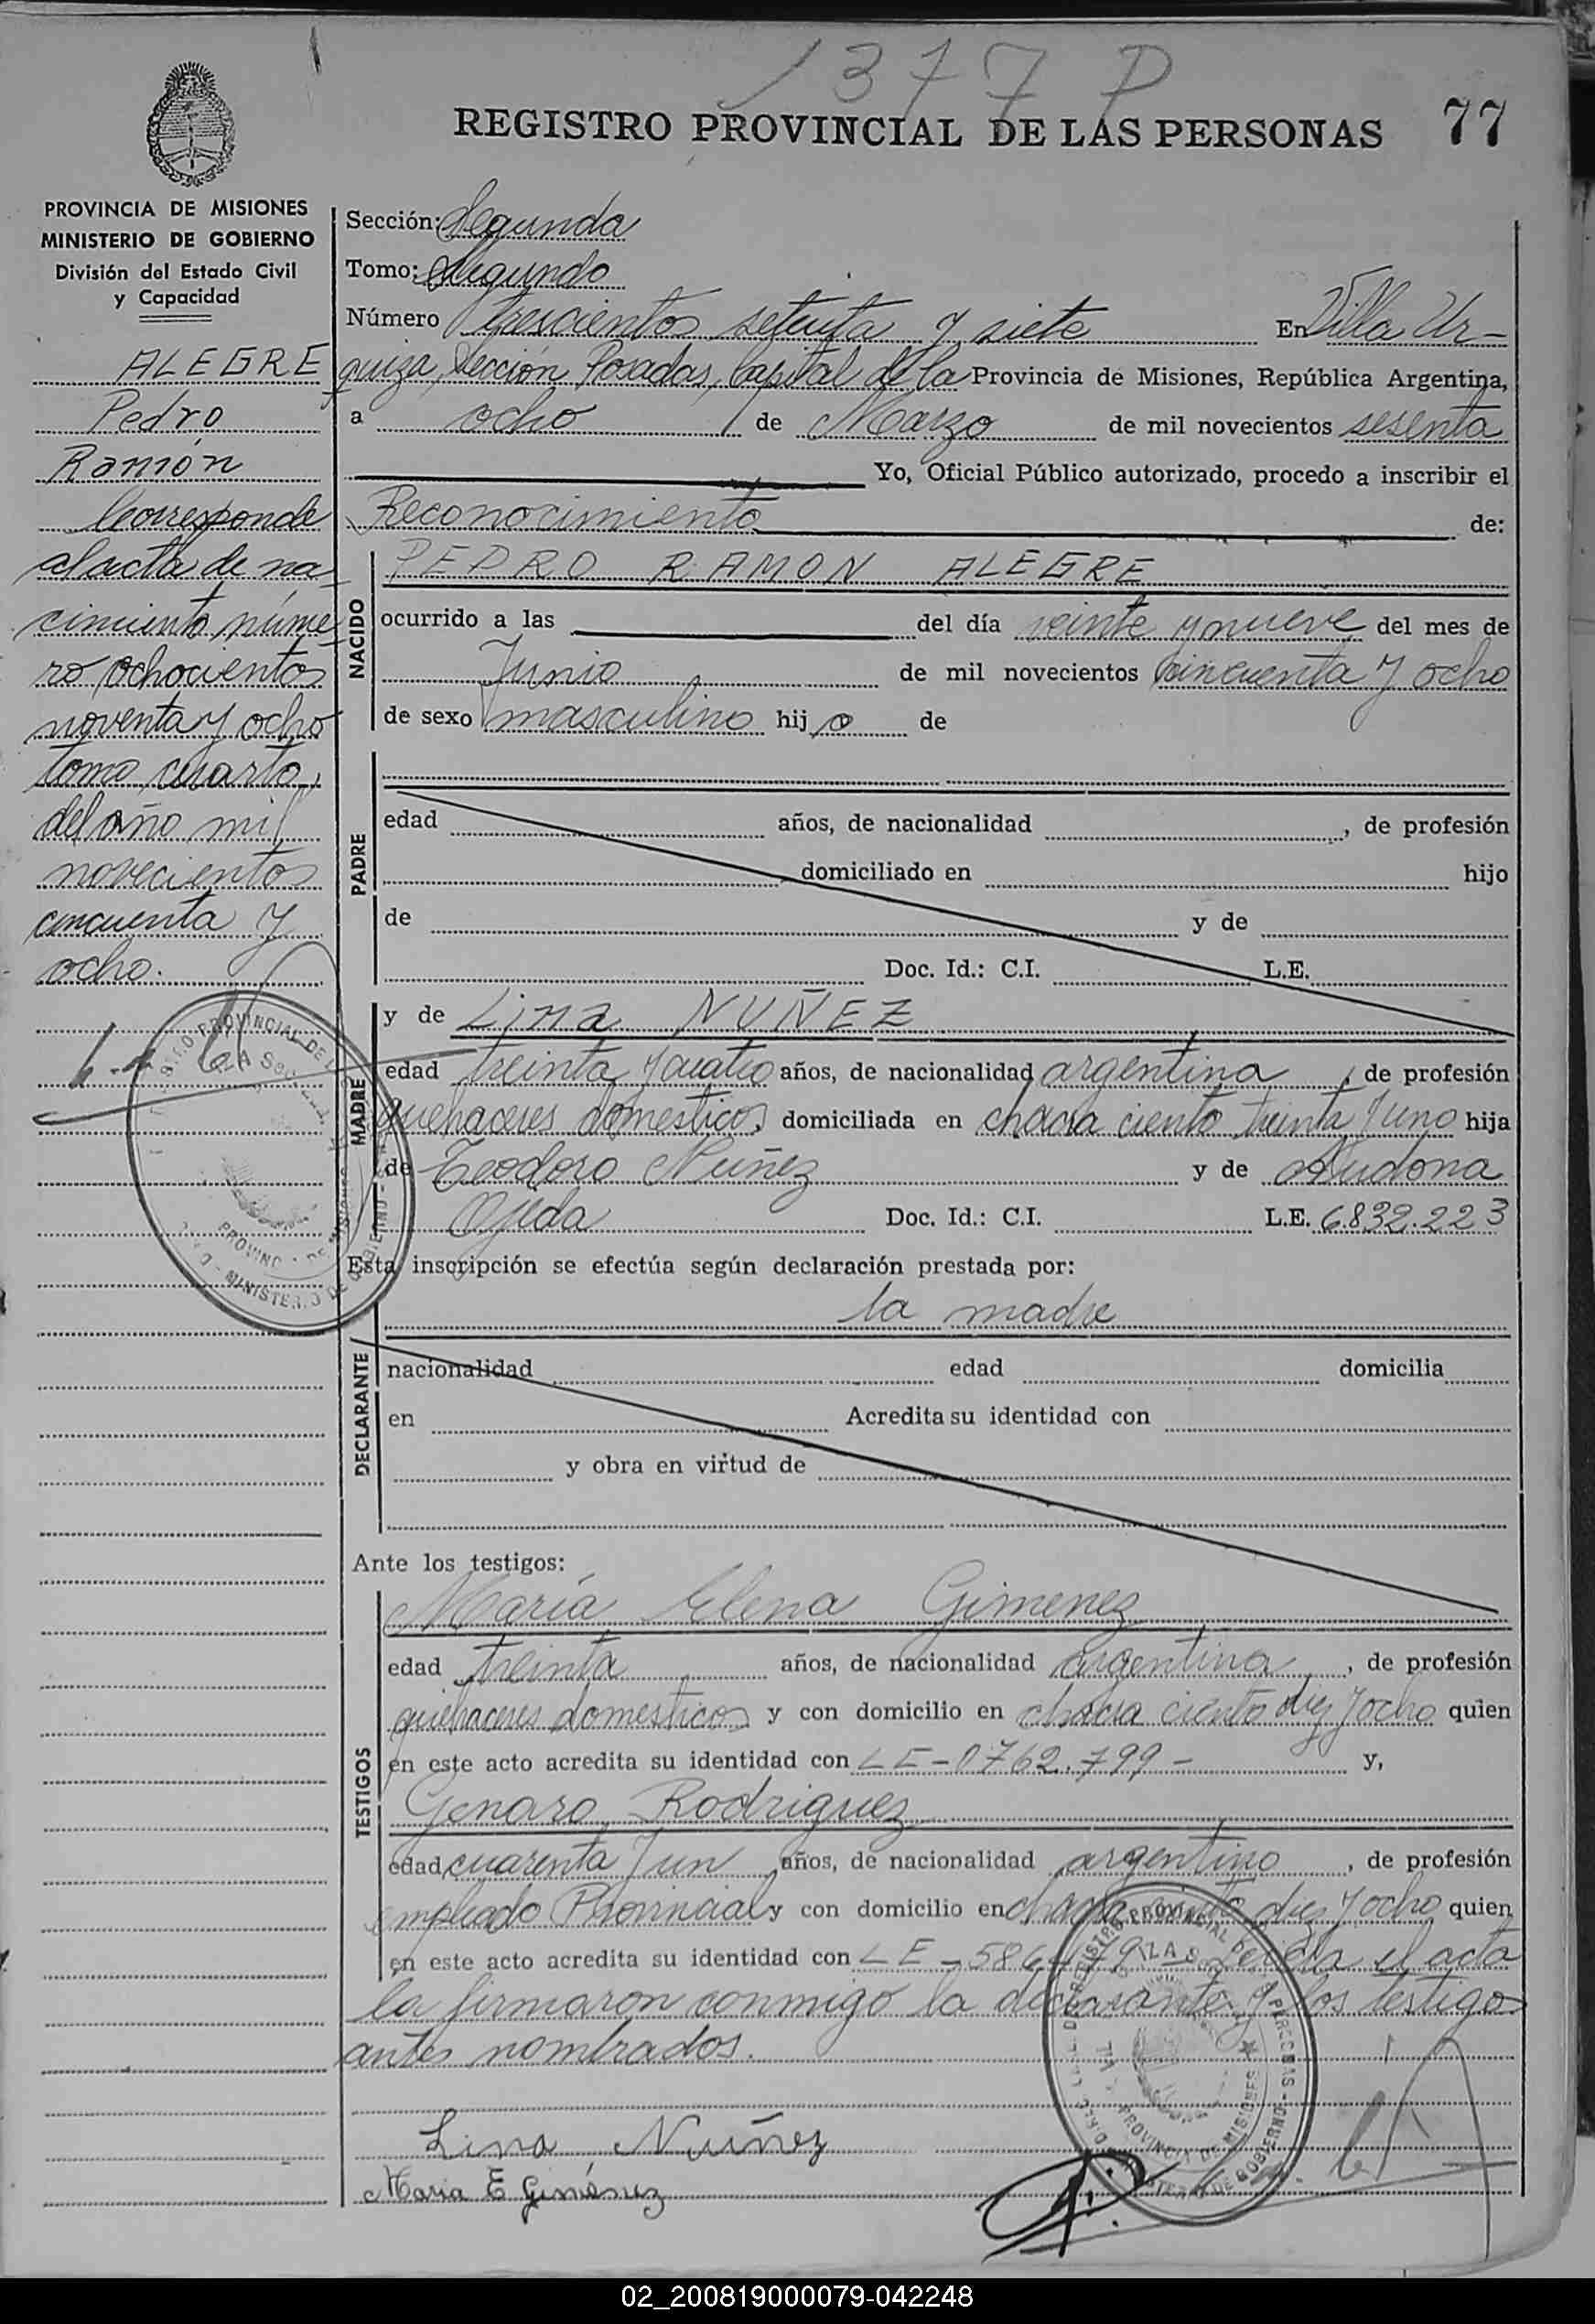 1377 P
REGISTRO PROVINCIAL DE LAS PERSONAS 77
PROVINCIA DE MISIONES
MINISTERIO DE GOBIERNO
División del Estado Civil
y Capacidad
ALEGRE
Pedro
Ramón
Corresponde
al acta de na-
cimiento núme-
ro ochocientos
noventa y ocho
tomo cuarto,
del año mil
novecientos
cincuenta y
ocho.
Sección: Segunda
Tomo: Segundo
Número Trescientos setenta y siete En Villa Ur-
quiza, Sección Posadas, Capital de la Provincia de Misiones, República Argentina,
a ocho de Marzo de mil novecientos sesenta
Yo, Oficial Público autorizado, procedo a inscribir el
Reconocimiento de:
NACIDO
PEDRO RAMON ALEGRE
ocurrido a las del día veinte y nueve del mes de
Junio de mil novecientos cincuenta y ocho
de sexo masculino hijo de
PADRE
edad años, de nacionalidad , de profesión
domiciliado en hijo
de y de
Doc. Id.: C.I. L.E.
MADRE
y de Lina NUÑEZ
edad treinta y cuatro años, de nacionalidad argentina , de profesión
quehaceres domesticos domiciliada en chacra ciento treinta y uno hija
de Teodoro Nuñez y de
Ojeda Doc. Id.: C.I. L.E. 6.832.223
Esta inscripción se efectúa según declaración prestada por:
la madre
DECLARANTE
nacionalidad edad domicilia
en Acredita su identidad con
y obra en virtud de
Ante los testigos:
TESTIGOS
María Elena Gimenez
edad treinta años, de nacionalidad argentina , de profesión
quehaceres domesticos y con domicilio en chacra ciento diez y ocho quien
en este acto acredita su identidad con LE-0762.799- y,
Genaro Rodriguez
edad cuarenta y un años, de nacionalidad argentino , de profesión
empleado Provincial y con domicilio en chacra ciento diez y ocho quien
en este acto acredita su identidad con LE- Leida el acta
la firmaron conmigo la declarante y los testigos
antes nombrados.
Lina Nuñez
Maria E Gimenez
02_200819000079-042248